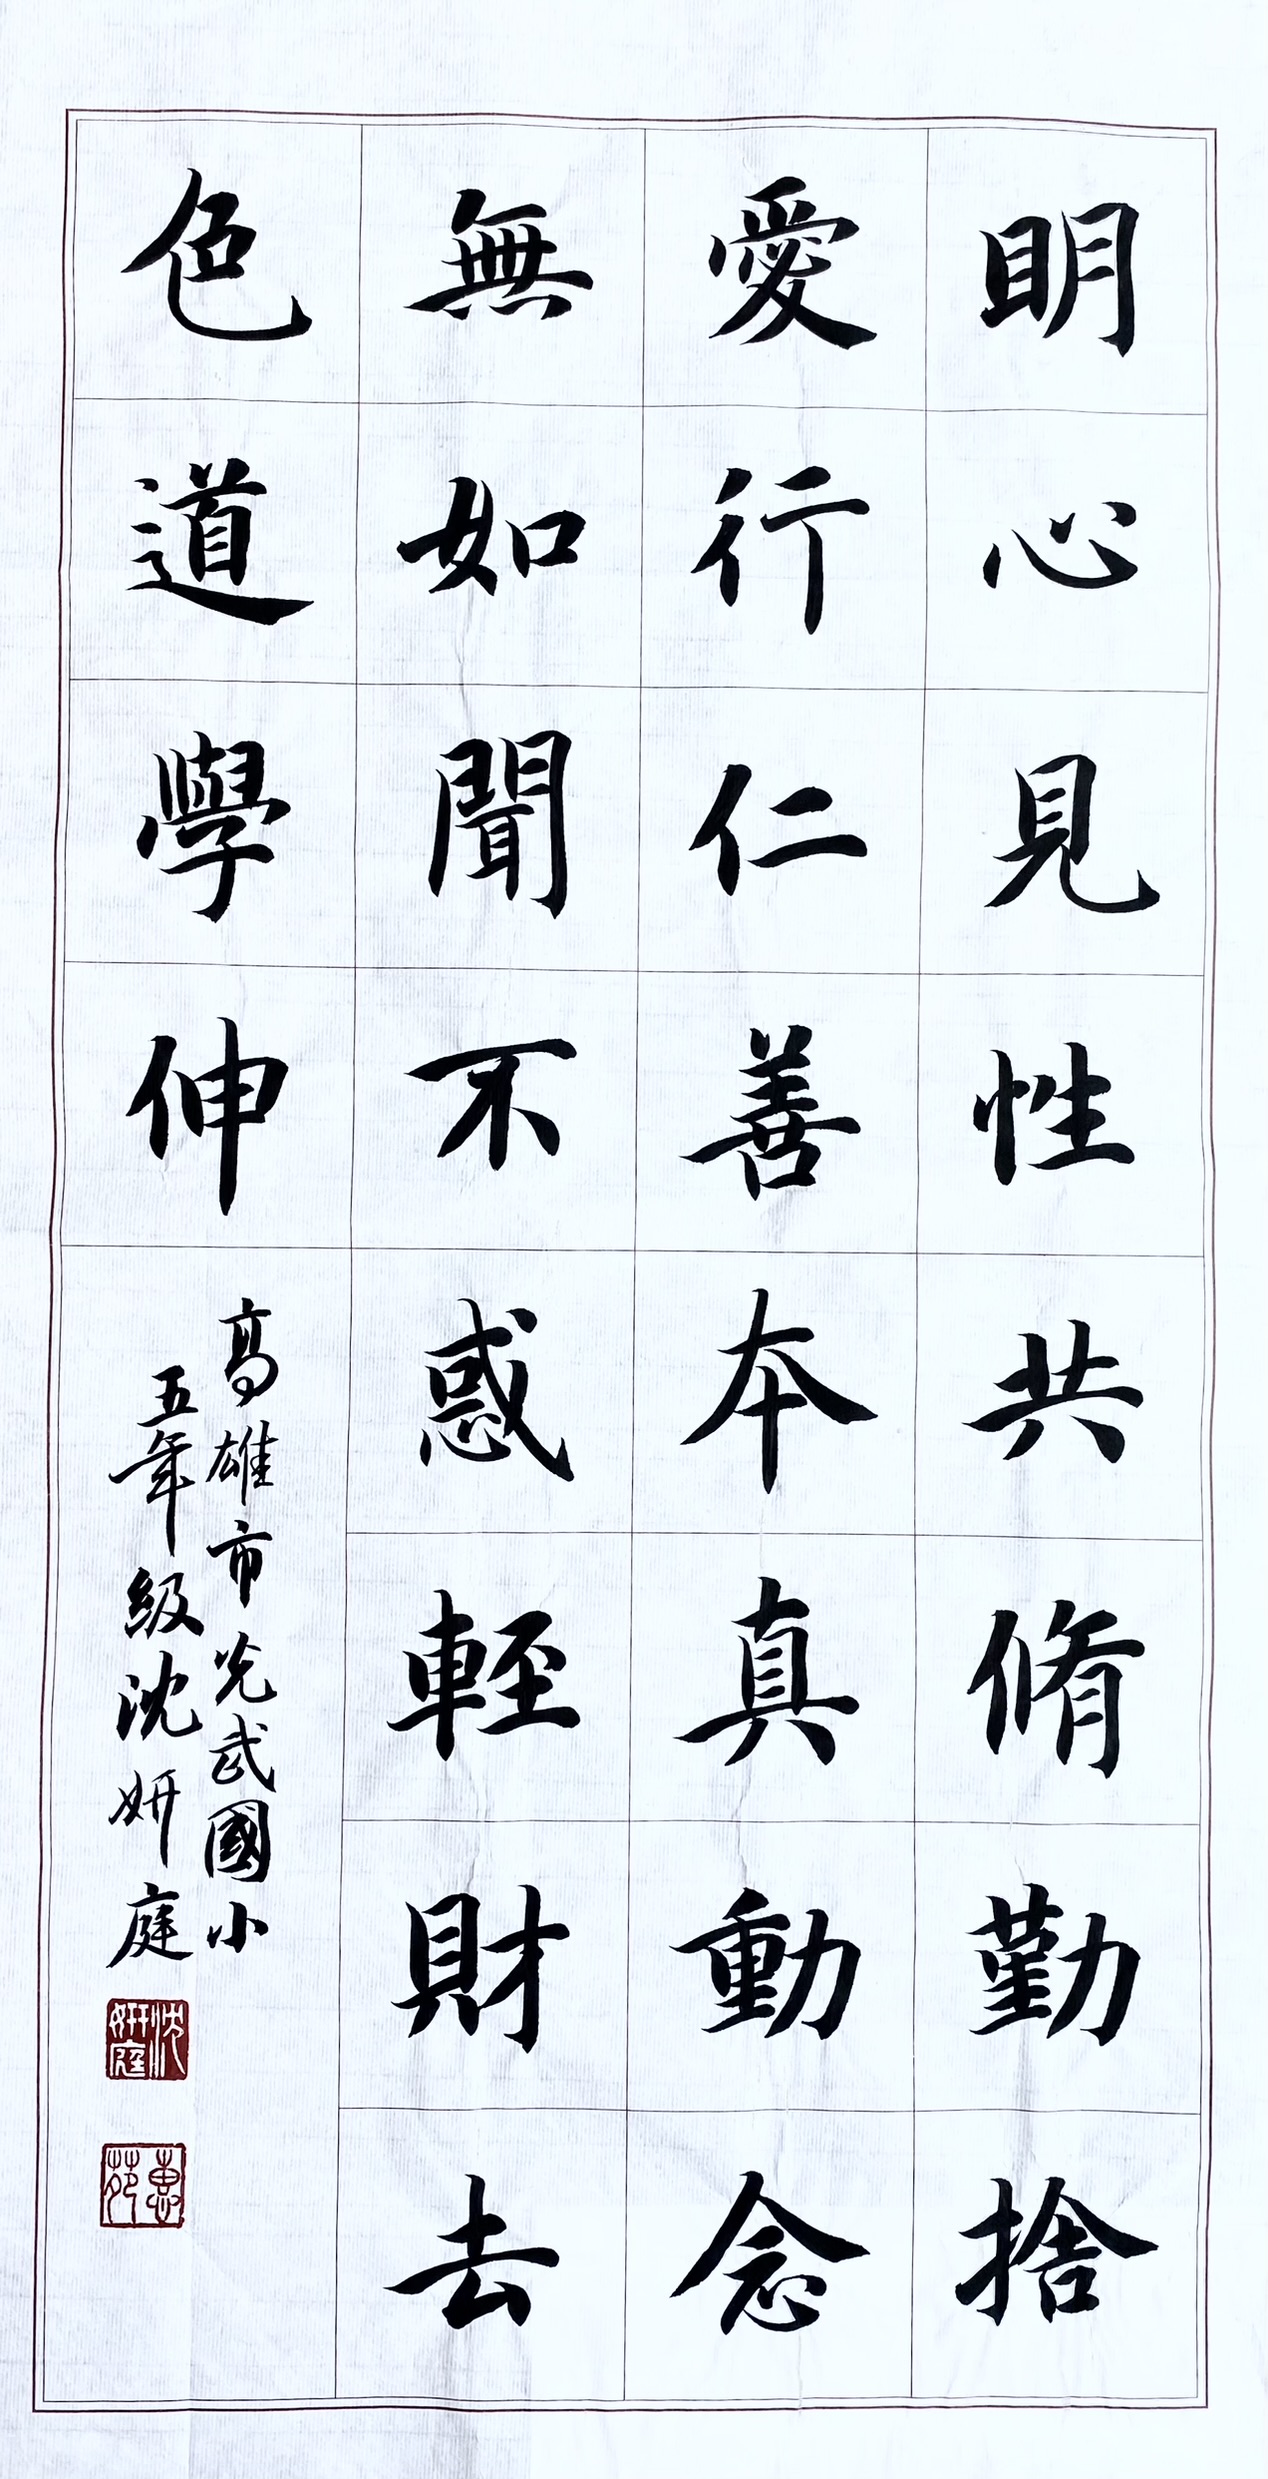 明心見性共脩勤捨
愛行仁善本真動念
無如聞不惑輕財去
色道學伸
高雄市光武國小
五年級沈妍庭
沈妍庭
惠苑